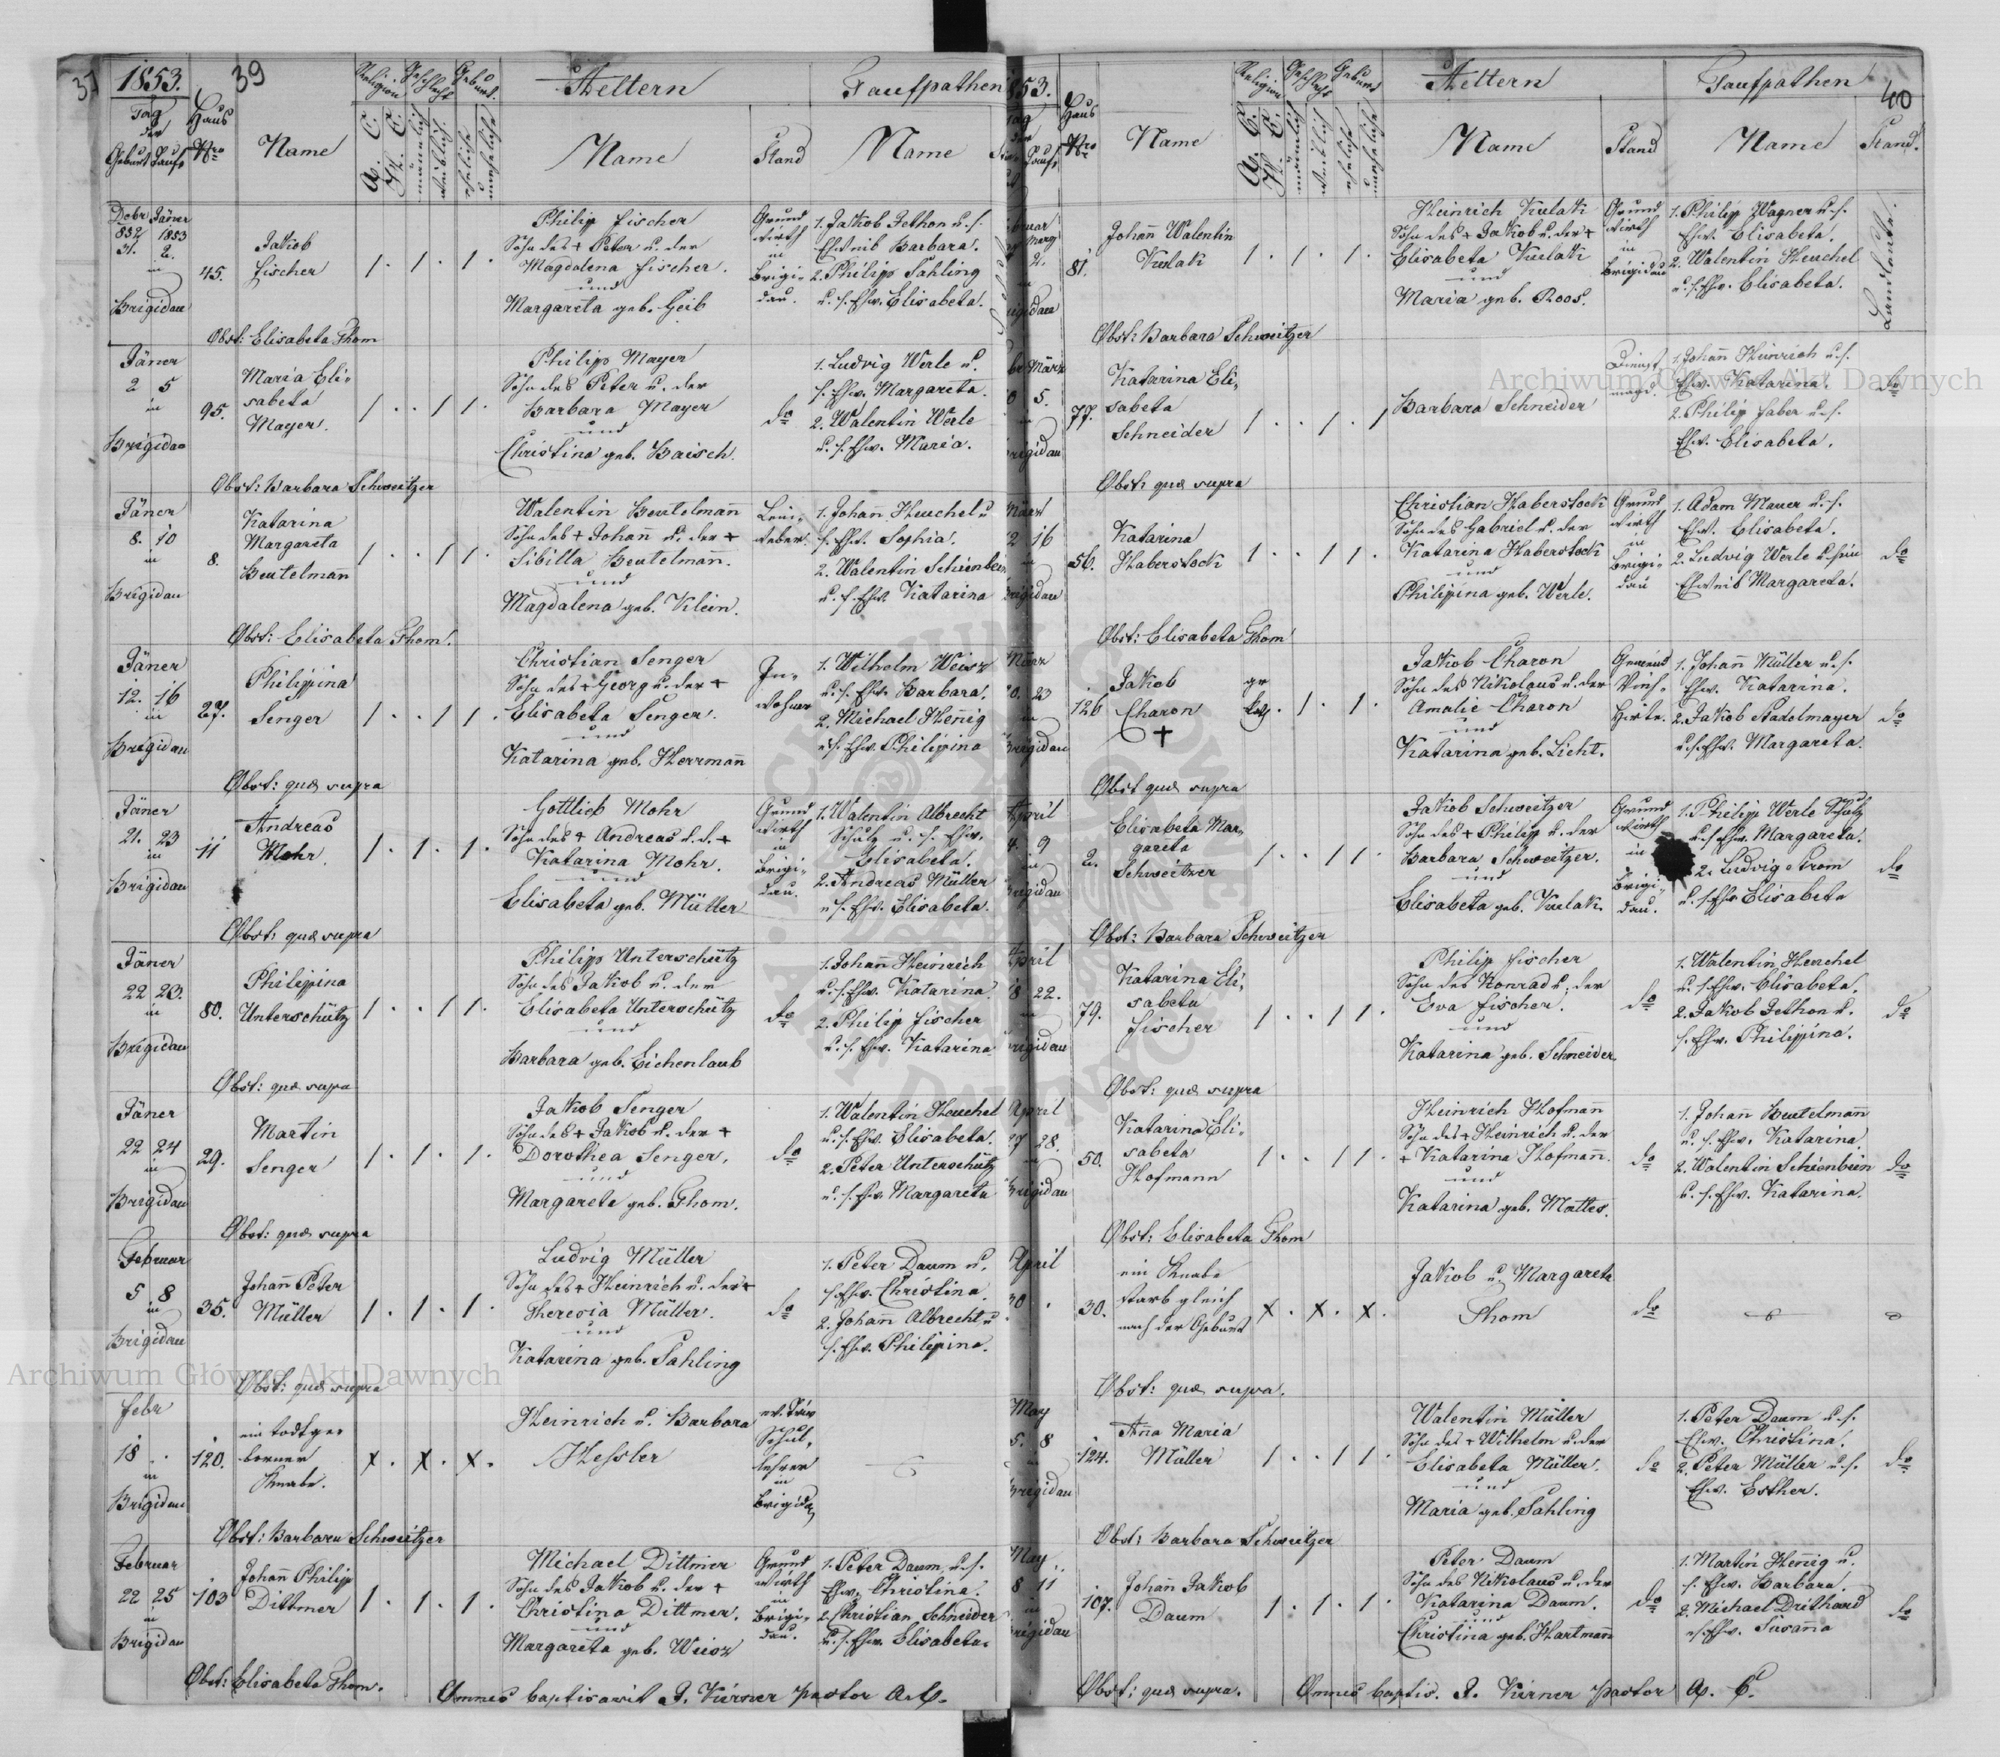 1853.
39
Tag
der
Geburt Taufe
Haus
Nro
Name
Religion
A. C.
H. C.
Geschlecht
männlich
weiblich
Geburt
eheliche
uneheliche
Aeltern
Name
Stand
Taufpathen
Name
Debr Jäner
852 1853
31. 2.
in
Brigidau
45.
Jakob
Fischer
1 . 1 . 1 .
Philip Fischer
Sohn des + Peter u. der
Magdalena Fischer.
und
Margareta geb. Geib
Grund
wirth
in
Brigi-
dau.
1. Jakob Jethon u. s.
Ehweib Barbara.
2. Philip Sahling
u. s. Ehw. Elisabeta.
Obst: Elisabeta Thom
Jäner
2 5
in
Brigidau
95.
Maria Eli-
sabeta
Mayer.
1 . . 1 1 .
Philipp Mayer
Sohn des Peter u. der
Barbara Mayer
und
Christina geb. Baisch.
do
1. Ludvig Werle u.
s. Ehw. Margareta.
2. Walentin Werle
u. s. Ehw. Maria.
Obst: Barbara Schweitzer
Jäner
8. 10
in
Brigidau
8.
Katarina
Margareta
Beutelmann̄
1 . . 1 1 .
Walentin Beutelmann̄
Sohn des + Johann̄ u. der +
Sibilla Beutelmann̄.
und
Magdalena geb. Klein.
Lein-
weber.
1. Johann̄ Heuchel u
s. Ehw. Sophia.
2. Walentin Schienbein
u. s. Ehw. Katarina
Obst: Elisabeta Thom.
Jäner
12. 16
in
Brigidau
27.
Philippina
Senger
1 . . 1 1 .
Christian Senger
Sohn des + Georg u. der +
Elisabeta Senger.
und
Katarina geb. Herrmann̄
In-
wohner
1. Wilhelm Weisz
u. s. Ehw. Barbara.
2. Michael Hen̄ig
u. s. Ehw. Philipina
Obst: quæ supra
Jäner
21. 23
in
Brigidau
11
Andreas
Mohr.
1 . 1 . 1 .
Gottlieb Mohr
Sohn des + Andreas u. d. +
Katarina Mohr.
und
Elisabeta geb. Müller
Grund
wirth
in
Brigi-
dau.
1. Walentin Albrecht
Schulz u. s. Ehw.
Elisabeta.
2. Andreas Müller
u s. Ehw. Elisabeta.
Obst: quæ supra
Jäner
22 23.
in
Brigidau
80.
Philipina
Unterschütz
1 . . 1 1 .
Philipp Unterschütz
Sohn des Jakob u. der
Elisabeta Unterschütz
und
Barbara geb. Eichenlaub
do
1. Johann̄ Heinrich
u. s. Ehw. Katarina.
2. Philip Fischer
u. s. Ehw. Katarina
Obst: quæ supra
Jäner
22 24
in
Brigidau
29.
Martin
Senger
1 . 1 . 1 .
Jakob Senger
Sohn des + Jakob u. der +
Dorothea Senger.
und
Margareta geb. Thom.
do
1. Walentin Heuchel
u. s. Ehw. Elisabeta.
2. Peter Unterschütz
u. s. Ehw. Margareta
Obst: quæ supra
Februar
5 8
in
Brigidau
35.
Johann̄ Peter
Müller
1 . 1 . 1 .
Ludvig Müller
Sohn des + Heinrich u. der +
Theresia Müller.
und
Katarina geb. Sahling
do
1. Peter Daum u.
s. Ehw. Christina.
2. Johann̄ Albrecht u
s. Ehw. Philipina.
Obst: quæ supra
Febr
18 . .
in
Brigidau
120.
ein todtge-
borner
Knabe.
x . x . x .
Heinrich u. Barbara
Hessler
Schul-
lehrer
in
Brigidau
Obst: Barbara Schweitzer
Februar
22 25
in
Brigidau
103
Johann̄ Philip
Dittmer
1 . 1 . 1 .
Michael Dittmer
Sohn des Jakob u. der +
Christina Dittmer.
und
Margareta geb. Weisz
Grund
wirth
in
Brigi-
dau.
1. Peter Daum u. s.
Ehw. Christina.
2. Christian Schneider
u. s. Ehw. Elisabeta.
Obst: Elisabeta Thom.
Omnes baptisavit J. Kirner pastor A. C.
853.
40
Haus
Nro
Name
Religion
A. C.
H. C.
Geschlecht
männlich
weiblich
Geburt
eheliche
uneheliche
Aeltern
Name
Stand
Taufpathen
Name
Stand.
81.
Johann̄ Walentin
Kulak
1 . 1 . 1 .
Heinrich Kulak
Sohn des + Jakob u. der +
Elisabeta Kulak
und
Maria geb. Roos.
Grund
wirth
in
Brigidau
1. Philip Wagner u. s.
Ehw. Elisabeta.
2. Walentin Heuchel
u. s. Ehw. Elisabeta.
Landleute.
Obst: Barbara Schweitzer
März
5.
77.
Katarina Eli-
sabeta
Schneider
1 . . 1 . 1
Barbara Schneider
Dienst
magd.
1. Johann̄ Heinrich u. s.
Ehw. Katarina.
2. Philip Faber u. s.
Ehw. Elisabeta.
do
Obst: quæ supra
März
16
56.
Katarina
Haberstock
1 . . 1 1 .
Christian Haberstock
Sohn des Gabriel u. der
Katarina Haberstock
und
Philippina geb. Werle.
Grund
wirth
in
Brigi-
dau
1. Adam Mauer u. s.
Ehw. Elisabeta.
2. Ludvig Werle u. sein
Ehweib Margareta.
do
Obst: Elisabeta Thom
März
23
126
Jakob
Charon
+
Jakob Charon
Sohn des Nikolaus u. der
Amalie Charon
und
Katarina geb. Licht.
Gemeind
Vieh-
Hirte.
1. Johann̄ Müller u. s.
Ehw. Katarina.
2. Jakob Stadelmayer
u. s. Ehw. Margareta.
do
Obst quæ supra
April
4. 9
in
2.
Elisabeta Mar-
gareta
Schweitzer
1 . . 1 1 .
Jakob Schweitzer
Sohn des + Philip u. der
Barbara Schweitzer.
und
Elisabeta geb. Kulak.
Grund
wirth
in
Brigi-
dau.
1. Philip Werle Schulz
u. s. Ehw. Margareta.
2. Ludvig Trom
u. s. Ehw Elisabeta
do
Obst: Barbara Schweitzer
April
8 22.
79.
Katarina Eli-
sabeta
Fischer
1 . . 1 1 .
Philip Fischer
Sohn des Konrad u. der
Eva Fischer.
und
Katarina geb. Schneider
do
1. Walentin Heuchel
u. s. Ehw. Elisabeta.
2. Jakob Jethon u.
s. Ehw. Philippina.
do
Obst: quæ supra
April
27 28.
50.
Katarina Eli-
sabeta
Hofmann
1 . . 1 1 .
Heinrich Hofmann
Sohn des + Heinrich u. der
+ Katarina Hofmann̄.
und
Katarina geb. Mattes.
do
1. Johan Beutelmann
u. s. Ehw. Katarina.
2. Walentin Schienbein
u. s. Ehw. Katarina.
do
Obst: Elisabeta Thom
April
30 .
30.
ein Knabe
starb gleich
nach der Geburt
x . x . x .
Jakob u. Margareta
Thom
do
Obst: quæ supra.
May
5. 8
124.
An̄a Maria
Müller
1 . . 1 1 .
Walentin Müller
Sohn des + Wilhelm u. der
Elisabeta Müller.
und
Maria geb. Sahling
do
1. Peter Daum u. s.
Ehw. Christina.
2. Peter Müller u. s.
Ehw. Esther.
do
Obst: Barbara Schweitzer
May
8 11
in
107.
Johann̄ Jakob
Daum
1 . 1 . 1 .
Peter Daum
Sohn des Nikolaus u. der
Katarina Daum.
und
Christina geb. Hartmann̄
do
1. Martin Hen̄ig u.
s. Ehw. Barbara.
2. Michael Drithard
u. s. Ehw. Susana
do
Obst: quæ supra.
Omnes baptis. J. Kirner pastor A. C.
Archiwum Główne Akt Dawnych
Archiwum Główne Akt Dawnych